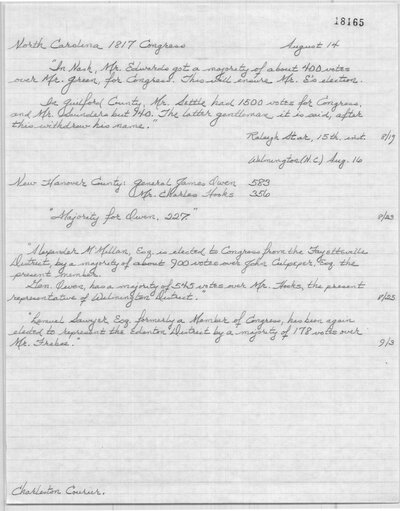 18165
North Carolina 1817 Congress August 14
"In Nash, Mr. Edwards got a majority of about 400 votes
over Mr. Green, for Congress. This will ensure Mr. E's election.
In Guilford County, Mr. Settle had 1500 votes for Congress,
and Mr. Saunders but 940. The latter gentleman, it is said, after
this withdrew his name."
Raleigh Star, 15th. inst. 8/19
Wilmington (N.C.) Aug. 16
New Hanover County: General James Owen 583
Mr. Charles Hooks 356
"Majority for Owen, 227" 8/23
"Alexander M'Millan, Esq. is elected to Congress from the Fayetteville
District, by a majority of about 900 votes over John Culpeper, Esq. the
present member.
Gen. Owen, has a majority of 545 votes over Mr. Hooks, the present
representative of Wilmington District." 8/25
"Lemuel Sawyer, Esq. formerly a Member of Congress, has been again
elected to represent the Edenton District by a majority of 178 votes over
Mr. Frebee." 9/3
Charleston Courier.